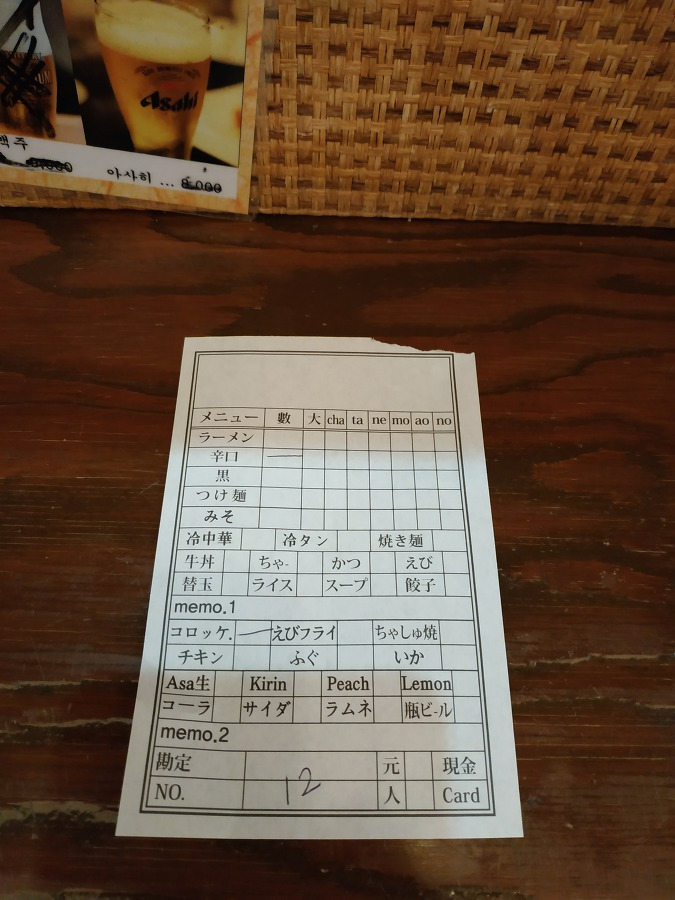 Asahi
맥주
아사히 ... 8,000
メニュー 數 大 cha ta ne mo ao no
ラーメン
辛口 一
黒
つけ麺
みそ
冷中華 冷タン 焼き麺
牛丼 ちゃ- かつ えび
替玉 ライス スープ 餃子
memo.1
コロッケ. 一 えびフライ ちゃしゅ焼
チキン ふぐ いか
Asa生 Kirin Peach Lemon
コーラ サイダ ラムネ 瓶ビール
memo.2
勘定 元 現金
NO. 12 人 Card